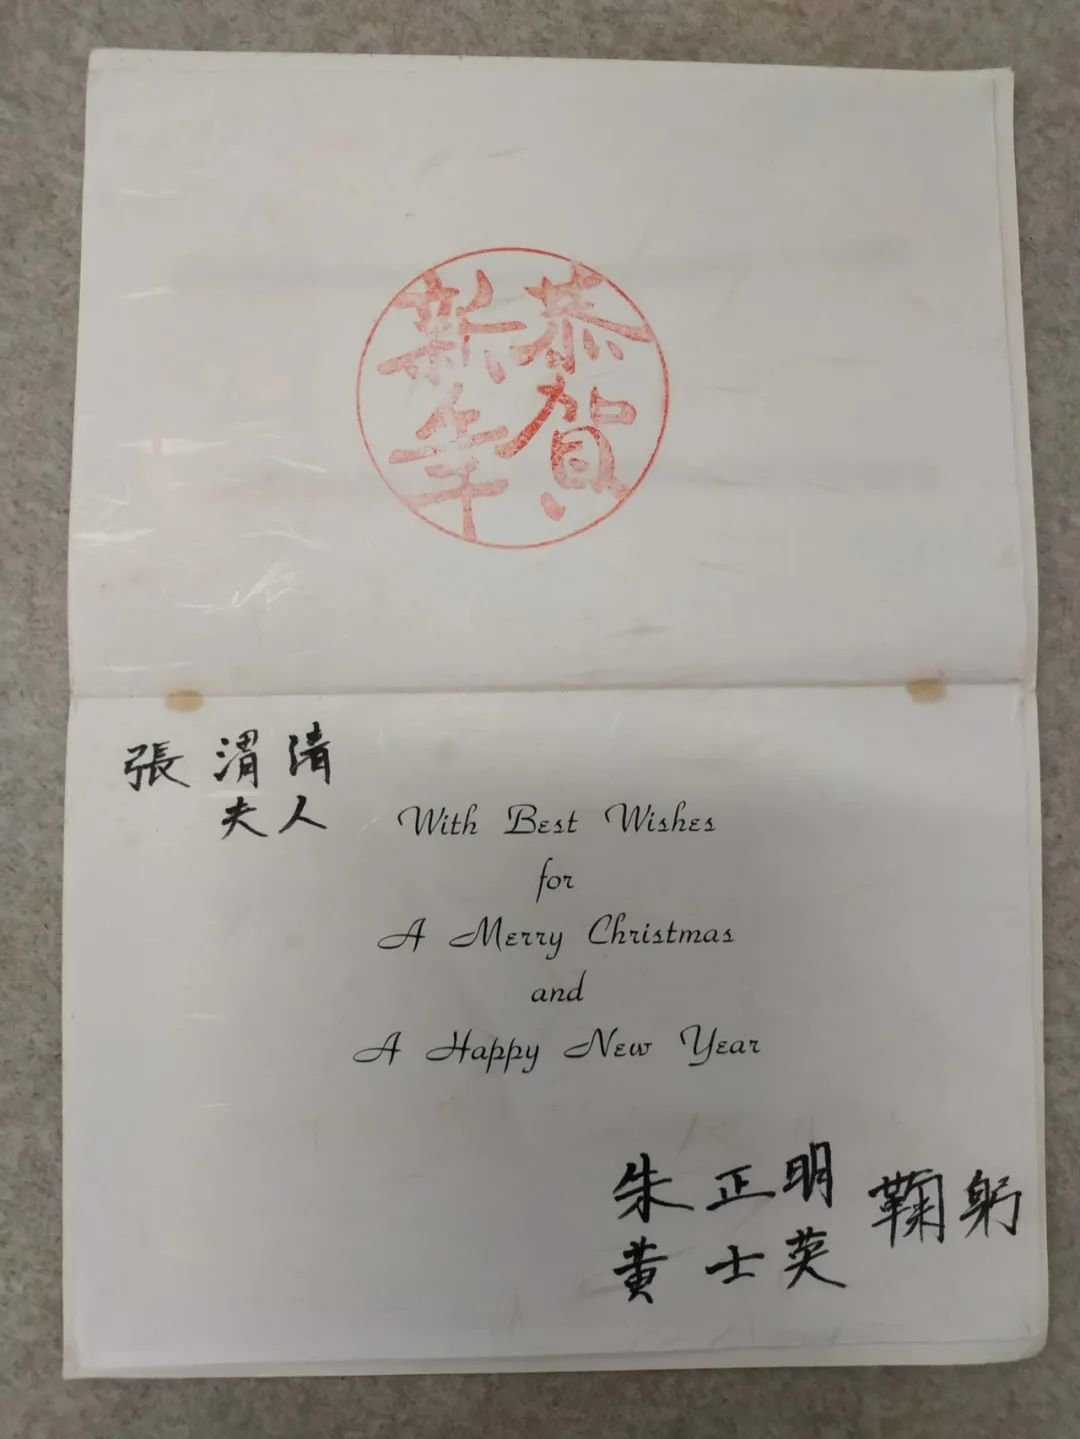 恭賀
新年
張渭清
夫人
With Best Wishes
for
A Merry Christmas
and
A Happy New Year
朱正明
黄士英
鞠躬